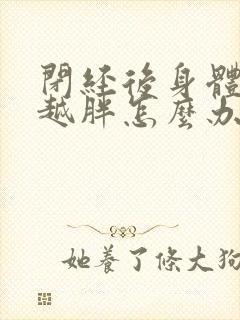 閉經後身體
越胖怎麼办
她養了條大狗